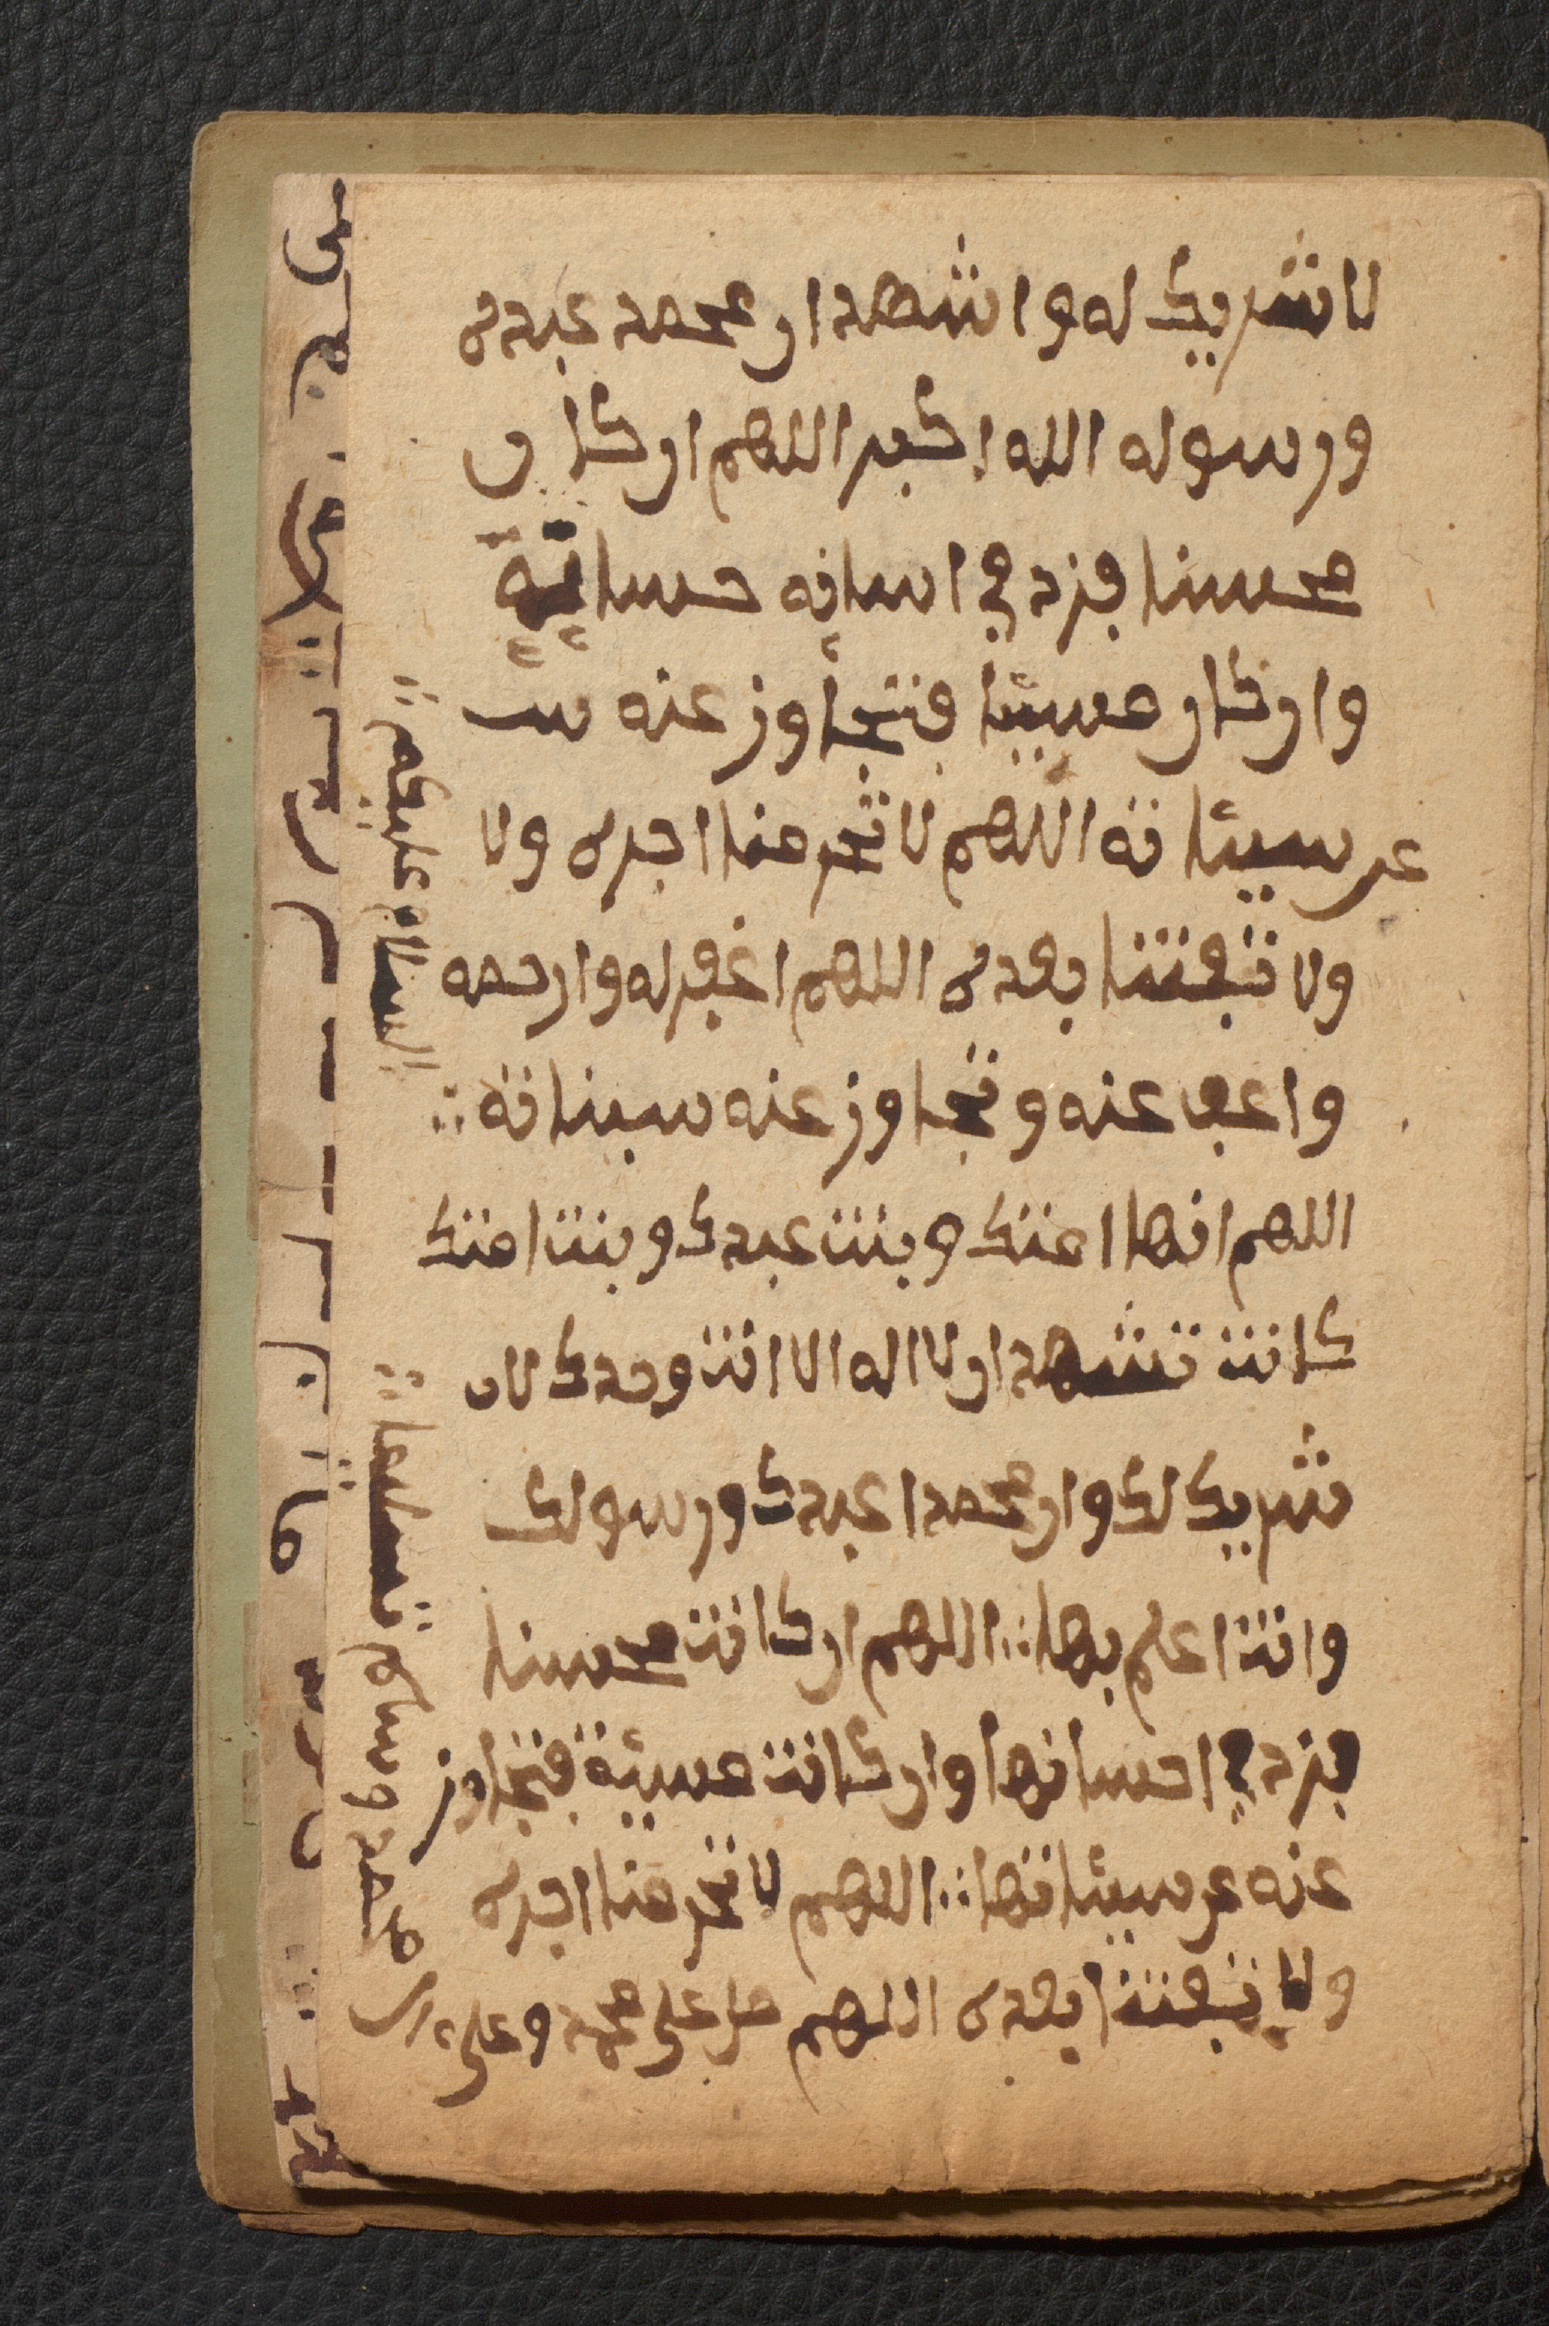 لا شريك له واشهد ان محمد عبده
ورسوله الله اكبر اللهم ان كان
محسنا فزد في اسانه حسانة
وان كان مسيئا فتجاوز عنه س
عن سيئاته اللهم لا تحرمنا اجره ولا
ولا تفتنا بعده اللهم اغفر له وارحمه
واعف عنه وتجاوز عنه سيئاته
اللهم انها امتك وبنت عبدك وبنت امتك
كانت تشهد ان لا اله الا انت وحدك لا
شريك لك وان محمدا عبدك ورسولك
وانت اعلم بها اللهم ان كانت محسنا
فزد في احسانها وان كانت مسيئة فتجاوز
عنه عن سيئاتها اللهم لا تحرمنا اجره
ولا تفتنا بعده اللهم صل على محمد وعلى ءال
محمد وسلم تسليما
السلام عليكم